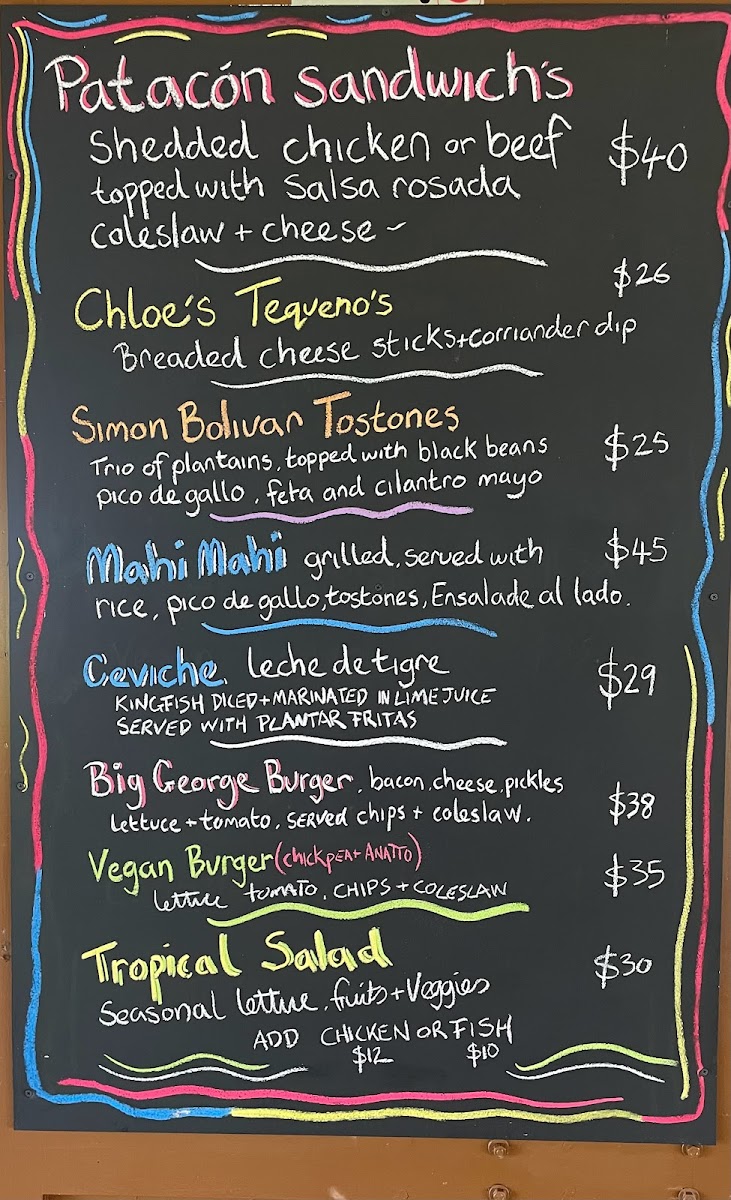 Patacón Sandwich's
Shedded chicken or beef $40
topped with salsa rosada
coleslaw + cheese ~
$26
Chloe's Tequeno's
Breaded cheese sticks + corriander dip
Simon Bolivar Tostones
Trio of plantains, topped with black beans $25
pico de gallo, feta and cilantro mayo
Mahi Mahi grilled, served with $45
rice, pico de gallo, tostones, Ensalade al lado.
Ceviche, leche de tigre $29
KINGFISH DICED + MARINATED IN LIME JUICE
SERVED WITH PLANTAR FRITAS
Big George Burger, bacon, cheese, pickles
lettuce + tomato, SERVED chips + coleslaw. $38
Vegan Burger (CHICKPEA + ANATTO) $35
lettuce TOMATO, CHIPS + COLESLAW
Tropical Salad $30
Seasonal lettuce, fruits + Veggies
ADD CHICKEN OR FISH
$12 $10